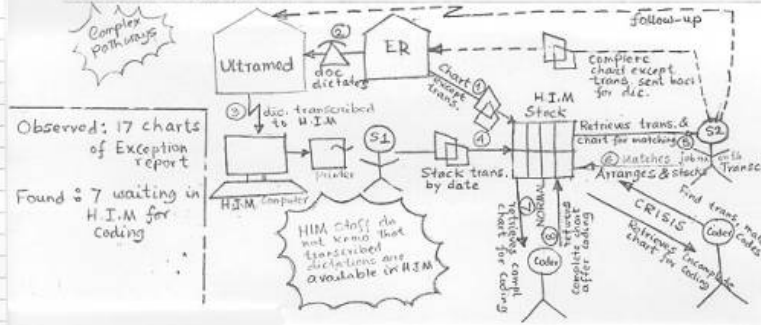 Complex
Pathways
Ultramed
2
doc
dictates
ER
follow-up
complete
chart except
trans. sent back
for dic.
Chart
except
trans.
1
4
3
dic. transcribed
to H.I.M
Observed: 17 charts
of Exception
report
Found: 7 waiting in
H.I.M for
Coding
H.I.M Computer
Printer
S1
Stack trans.
by date
H.I.M
Stock
Retrieves trans. &
chart for matching
5
S2
6
Matches job no
with
Transc
Arranges & stocks
HIM Staff do
not know that
transcribed
dictations are
available in HIM
7
retrieves compl
chart for coding
NORMAL
8
returns
complete chart
after coding
Coder
CRISIS
Retrieves incomplete
chart for coding
Find trans, ma
codes
Coder